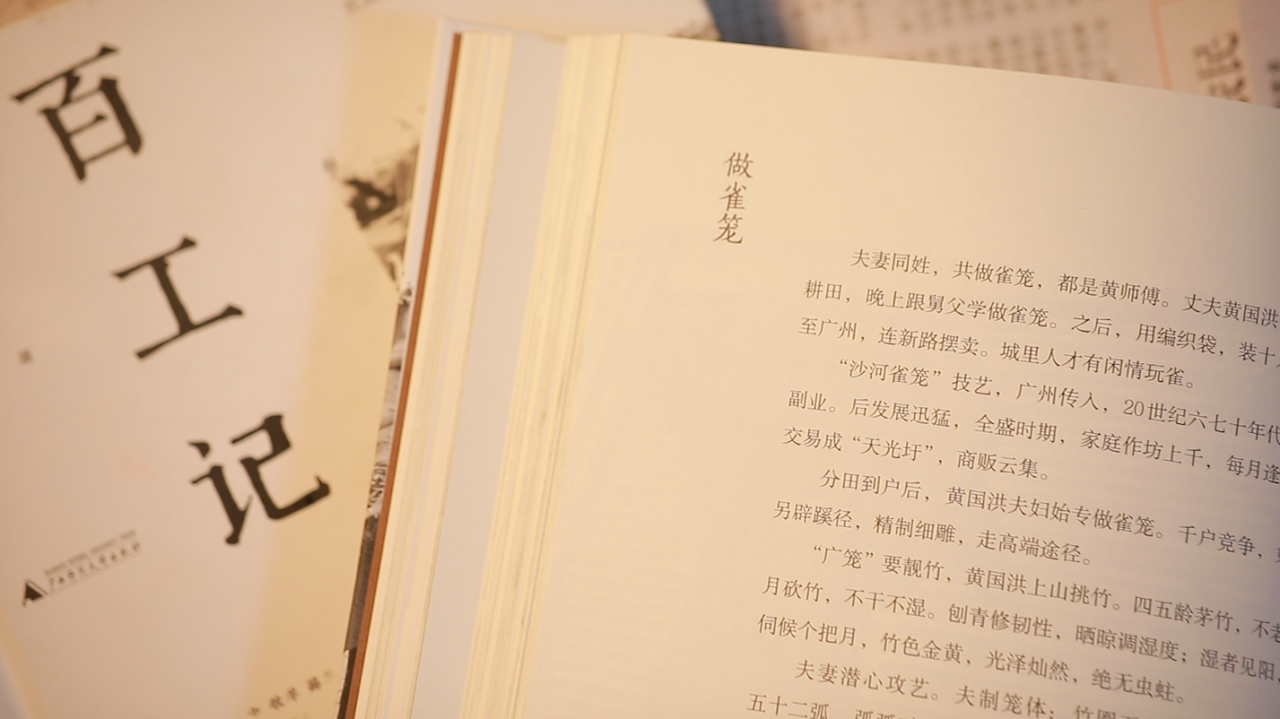 百工记
做雀笼
夫妻同姓，共做雀笼，都是黄师傅。丈夫黄国洪
耕田，晚上跟舅父学做雀笼。之后，用编织袋，装十
至广州，连新路摆卖。城里人才有闲情玩雀。
“沙河雀笼”技艺，广州传入，20世纪六七十年代
副业。后发展迅猛，全盛时期，家庭作坊上千，每月逢
交易成“天光圩”，商贩云集。
分田到户后，黄国洪夫妇始专做雀笼。千户竞争，
另辟蹊径，精制细雕，走高端途径。
“广笼”要靓竹，黄国洪上山挑竹。四五龄茅竹，不老
月砍竹，不干不湿。刨青修韧性，晒晾调湿度；湿者见阳，
伺候个把月，竹色金黄，光泽灿然，绝无虫蛀。
夫妻潜心攻艺。夫制笼体；竹圈
五十二弧